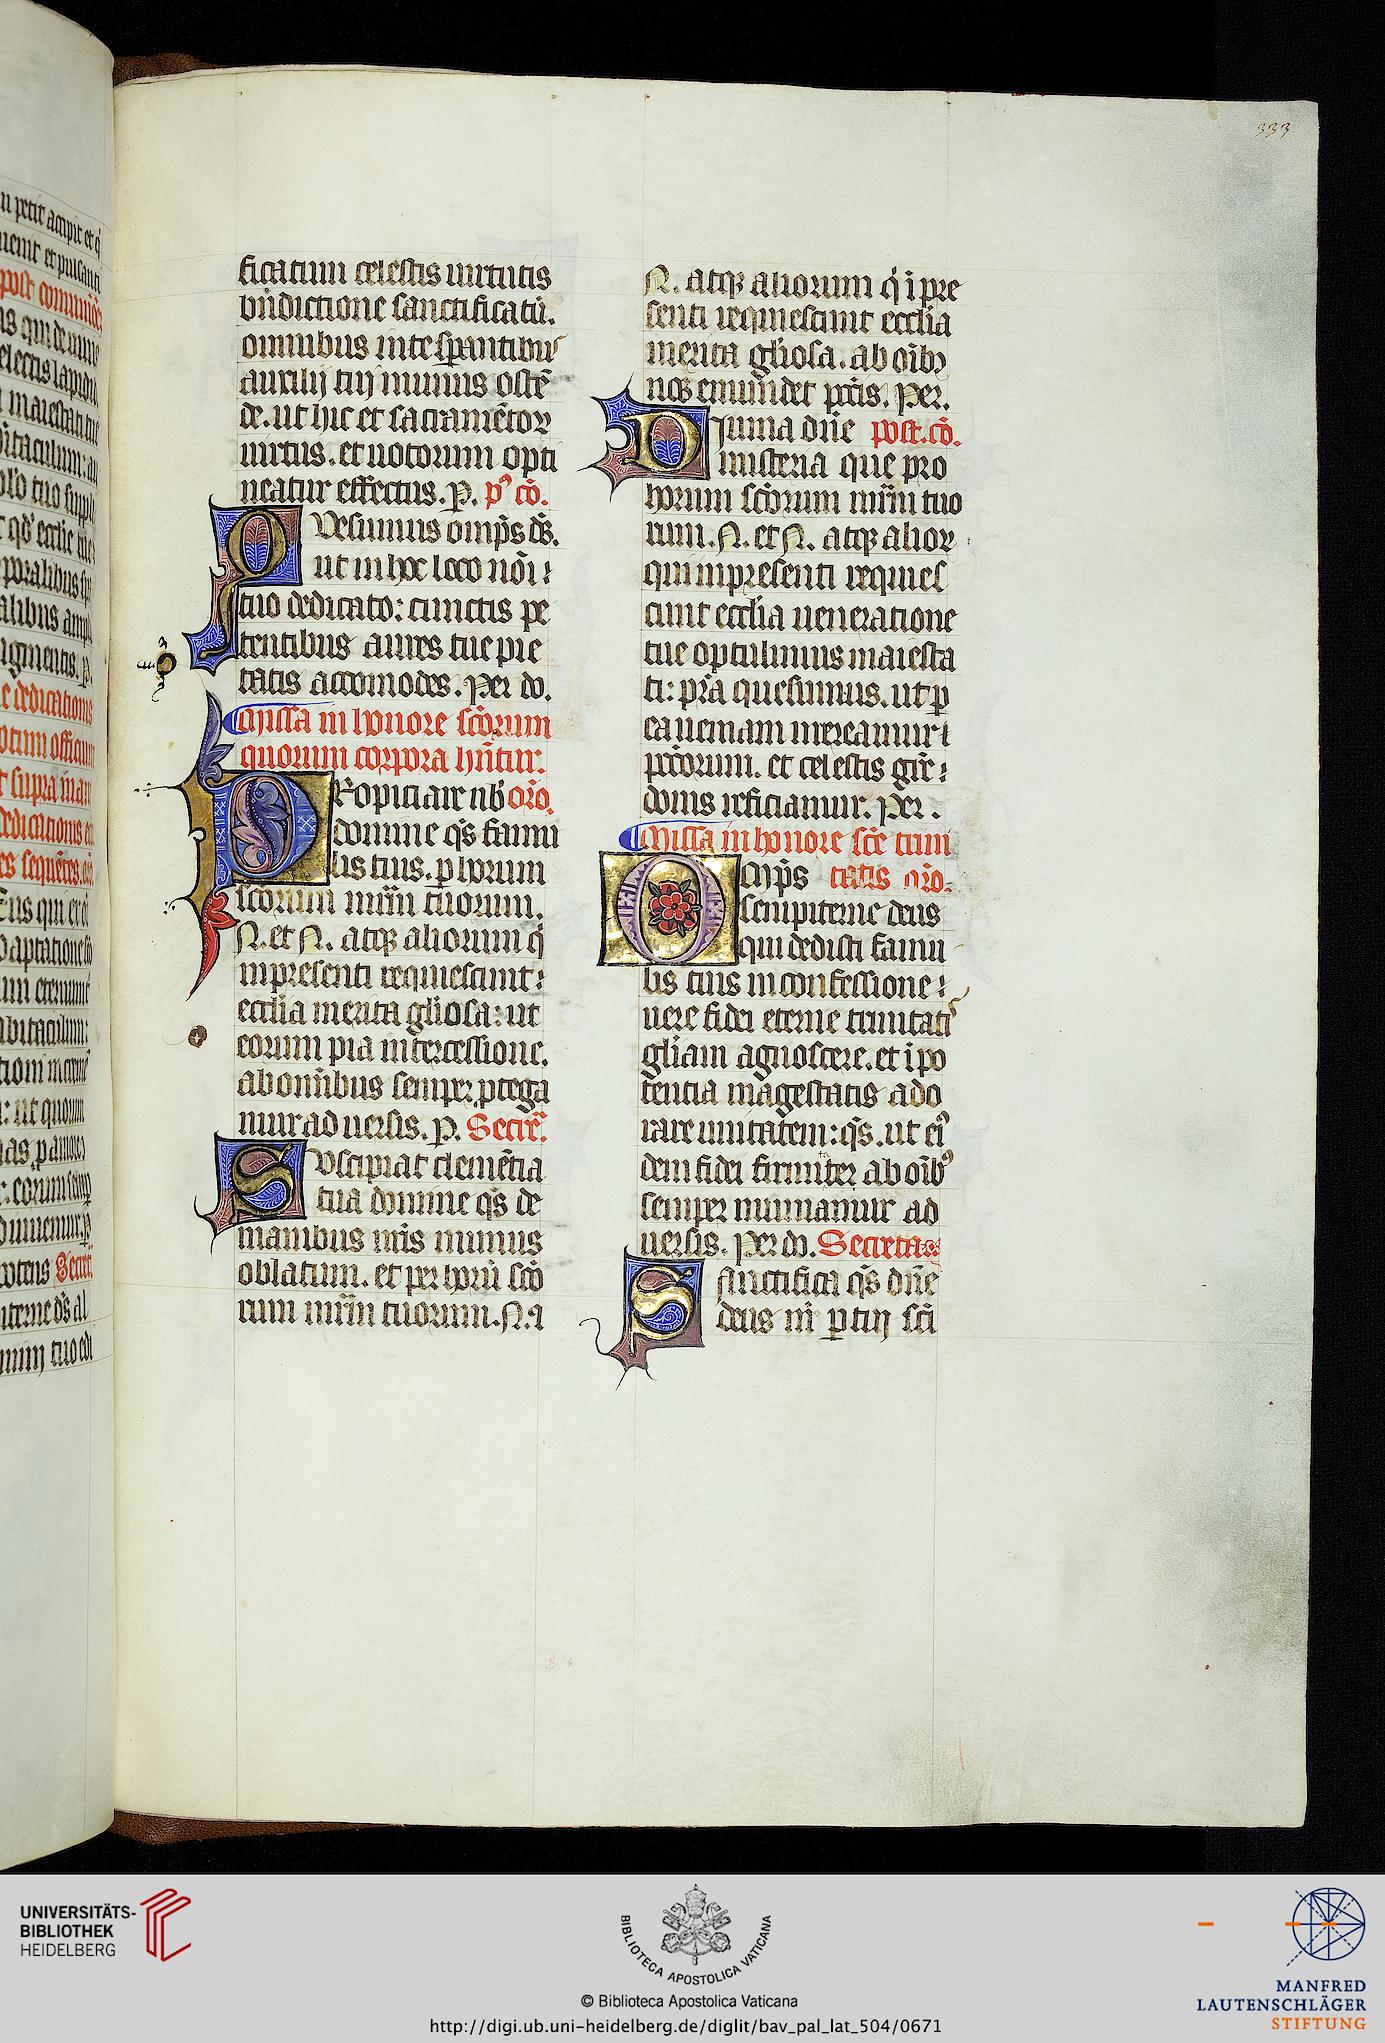 333
ficatum celestis uirtutis
bn̄dictione sanctificatū.
omnibus in te sꝑantibus
auxilij tui munus ostē
de. ut hic et sacramētoꝝ
uirtus. et uotorum opti
neatur effectus. P. pꝰ cō.
QVesumus omp̄s ds̄.
ut in hoc loco nōi
tuo dedicato: cunctis pe
tentibus aures tue pie
tatis accomodes. Per do.
Missa in honore sc̄orum
quorum corpora hn̄tur.
PRopiciare nb̄ or̄o.
domine qs̄ famu
lis tuis. ꝑ horum
sc̄orum mr̄m tuorum.
N. et N. atqꝫ aliorum q̄
in presenti requiescunt
ecc̄lia merita gl̄iosa: ut
eorum pia intercessione.
ab om̄ibus semper ꝓtega
mur aduersis. P. Secret̄.
SVscipiat clemētia
tua domine qs̄ de
manibus nr̄is munus
oblatum. et per horū sc̄o
rum mr̄m tuorum. N. ⁊
N. atqꝫ aliorum q̄ ī pre
senti requiescunt ecc̄lia
merita gl̄iosa. ab oīb
nos emundet pc̄is. Per.
DJuina dn̄e post. cō.
misteria que pro
horum sc̄orum mr̄m tuo
rum. N. et N. atqꝫ alioꝝ
qui in presenti requies
cunt ecc̄lia ueneratione
tue optulimus maiesta
ti: pr̄a quesumus. ut ꝑ
ea ueniam mereamur
pc̄torum. et celestis gr̄e
donis reficiamur. Per.
Missa in honore sc̄e trini
OMp̄s tatis or̄o.
sempiterne deus
qui dedisti famu
lis tuis in confessione
uere fidei eterne trinitatis
gl̄iam agnoscere. et ī po
tentia magestatis ado
rare unitatem: qs̄. ut eiꝰ
dem fidei firmiter ab oīb
semper muniamur ad
uersis. Per do. Secreta
Sanctifica qs̄ dn̄e
deus nr̄ ꝑ tui sc̄i
UNIVERSITÄTS-
BIBLIOTHEK
HEIDELBERG
BIBLIOTECA APOSTOLICA VATICANA
© Biblioteca Apostolica Vaticana
http://digi.ub.uni-heidelberg.de/diglit/bav_pal_lat_504/0671
MANFRED
LAUTENSCHLÄGER
STIFTUNG